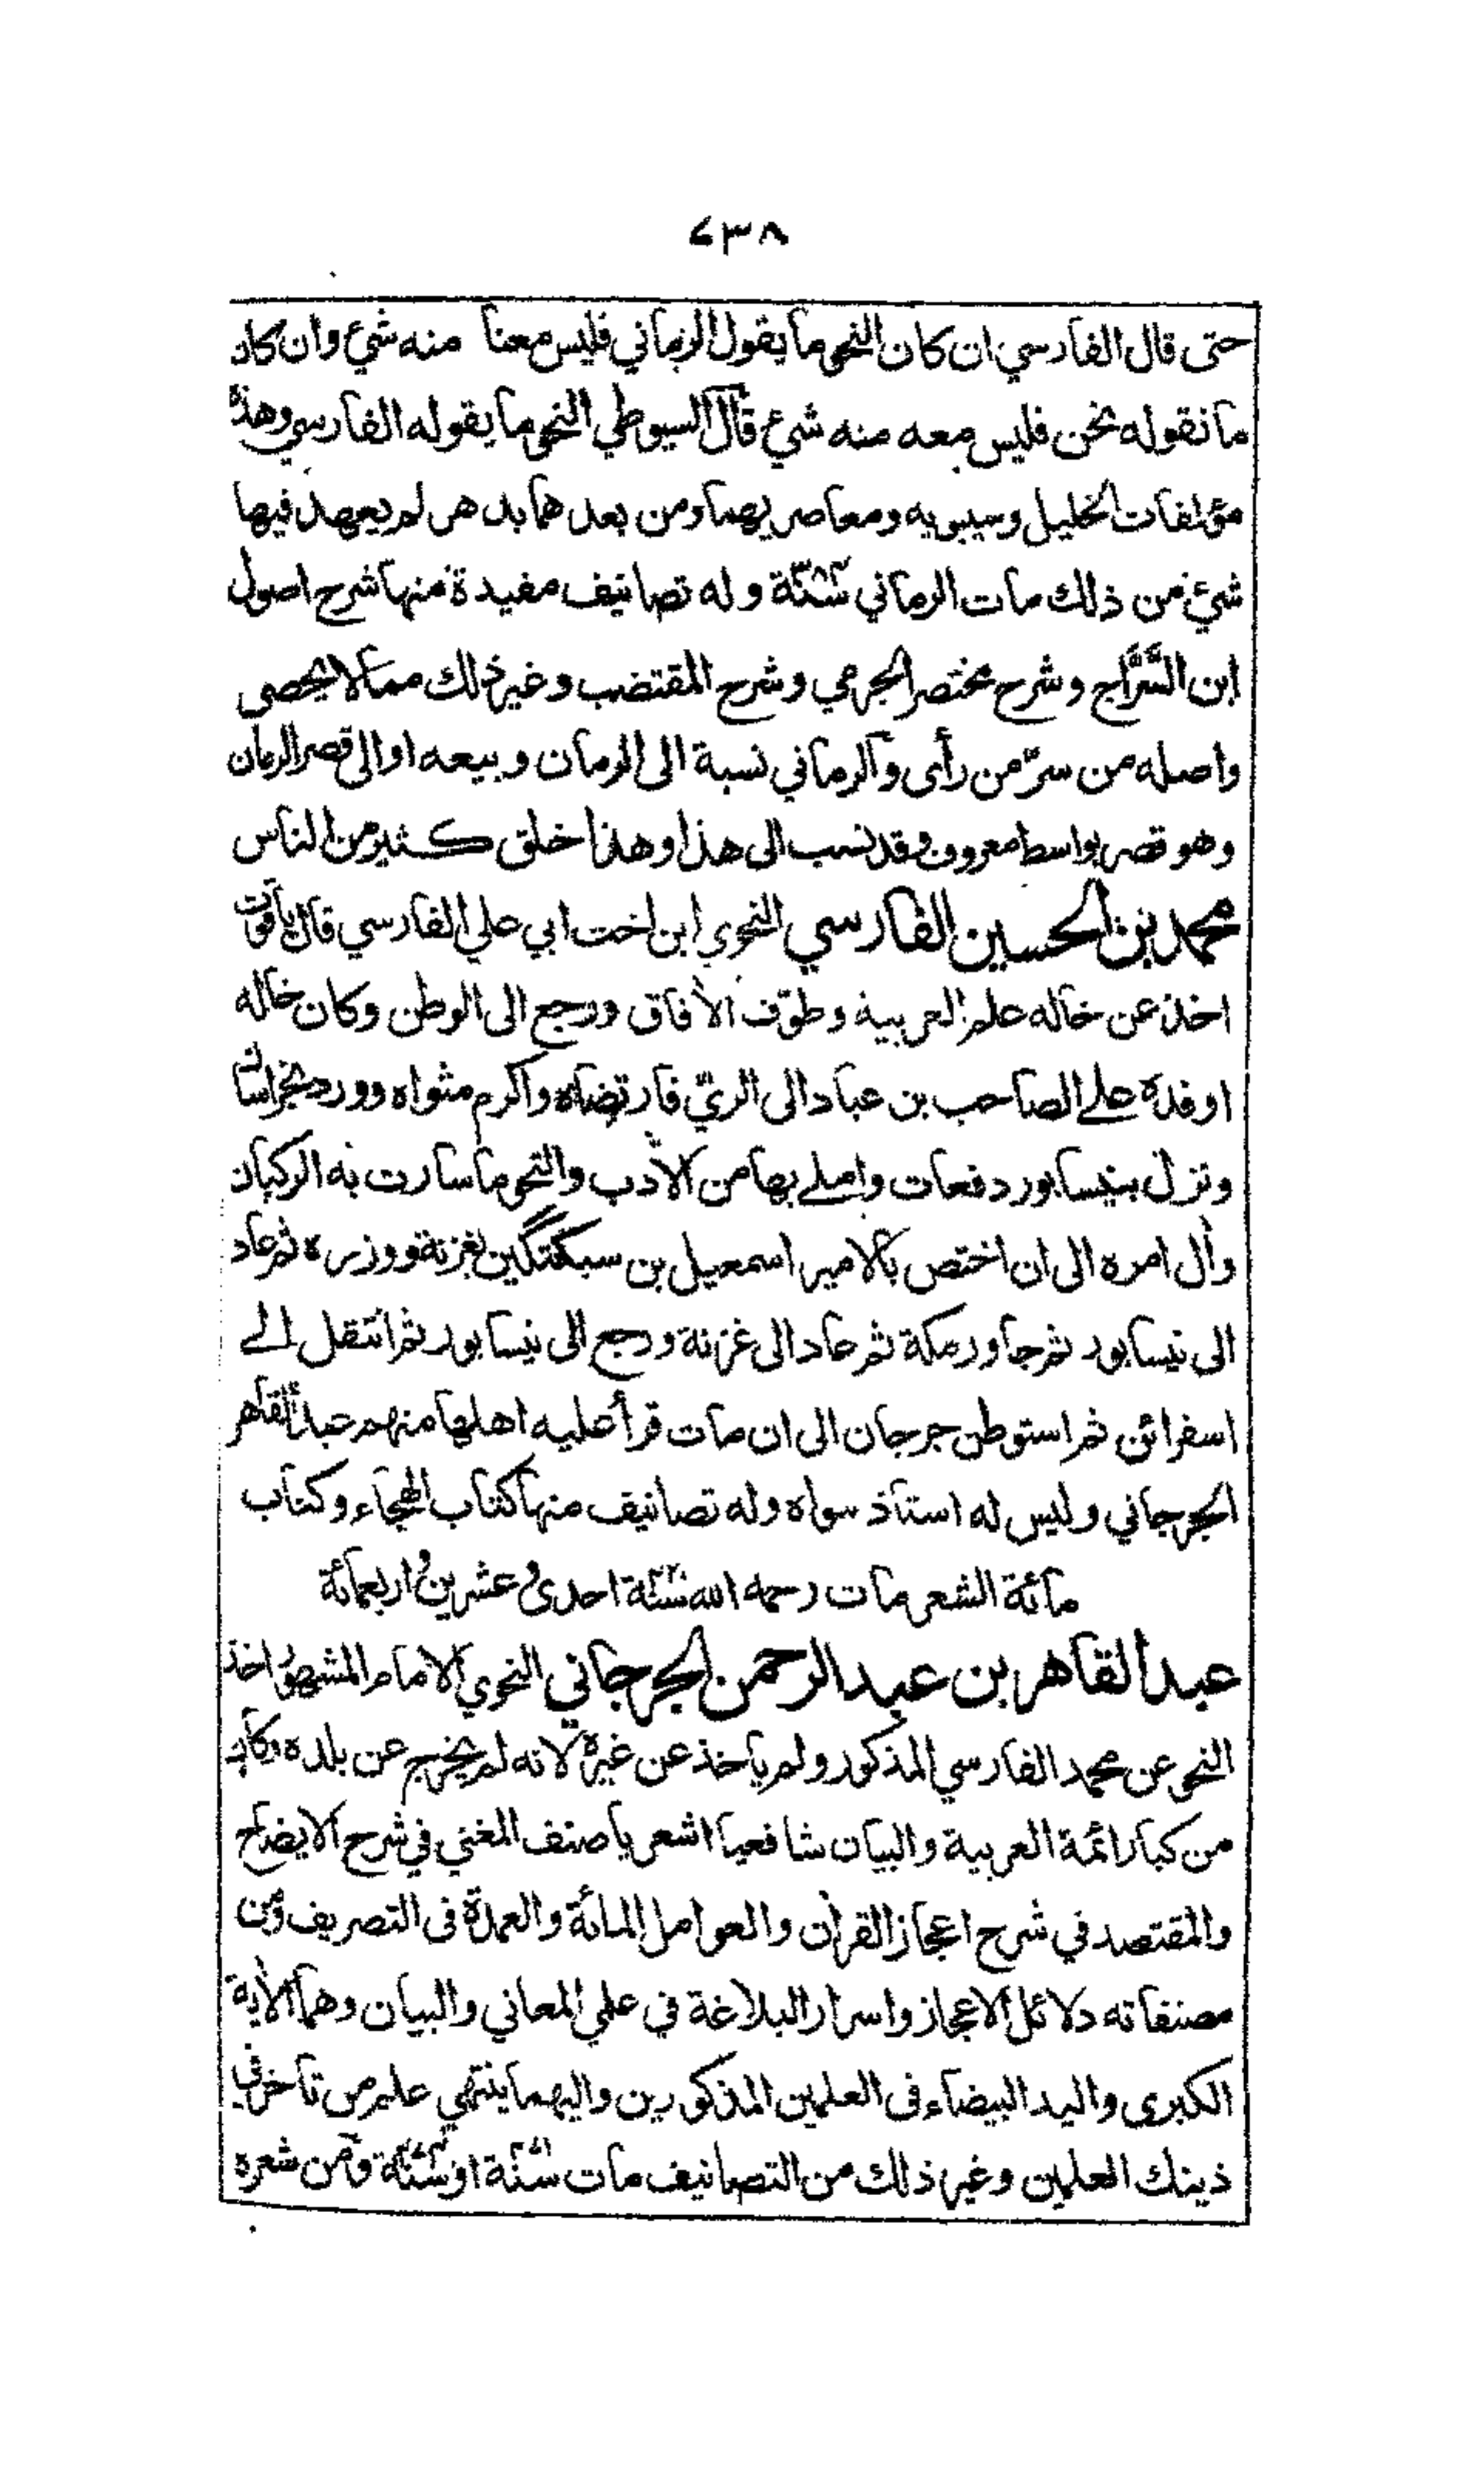 ٧٣٨
حتى قال الفارسي ان كان النحو ما يقول الرماني فليس معنا منه شئ وان كان
ما نقوله نحن فليس معه منه شئ قال السيوطي النحو ما يقوله الفارسي وهذه
مؤلفات الخليل وسيبويه ومعاصريهما ومن بعدهما بدهر لم يعهد فيها
شئ من ذلك مات الرماني وله تصانيف مفيدة منها شرح اصول
ابن السَّرَّاج وشرح مختصر الجرمي وشرح المقتضب وغير ذلك مما لا يحصى
واصله من سرّ من رأى والرماني نسبة الى الرمان وبيعه او الى قصر الرمان
وهو قصر بواسط معروف وقد نسب الى هذا وهذا خلق كثير من الناس
محمد بن الحسين الفارسي النحوي ابن اخت ابي علي الفارسي قال ياقوت
اخذ عن خاله علم العربية وطوّف الآفاق ورجع الى الوطن وكان خاله
اوفده على الصاحب بن عباد الى الريّ فارتضاه واكرم مثواه وورد بخراسان
ونزل بنيسابور دفعات واملى بها من الأدب والنحو ما سارت به الركبان
وآل امره الى ان اختص بالامير اسمعيل بن سبكتگين بغزنة ووزره ثم عاد
الى نيسابور ثم جاور مكة ثم عاد الى غزنة ورجع الى نيسابور ثم انتقل الى
اسفرائن ثم استوطن جرجان الى ان مات قرأ عليه اهلها منهم عبد القاهر
الجرجاني وليس له استاذ سواه وله تصانيف منها كتاب الهجاء وكتاب
مائة الشعر مات رحمه الله سنة احدى وعشرين واربعمائة
عبد القاهر بن عبد الرحمن الجرجاني النحوي الامام المشهور اخذ
النحو عن محمد الفارسي المذكور ولم يأخذ عن غيره لانه لم يخرج عن بلده وكان
من كبار ائمة العربية والبيان شافعيا اشعريا صنف المغني في شرح الايضاح
والمقتصد في شرح اعجاز القرآن والعوامل المائة والعمدة فى التصريف ومن
مصنفاته دلائل الاعجاز واسرار البلاغة في علمي المعاني والبيان وهما الآية
الكبرى واليد البيضاء فى العلمين المذكورين واليهما ينتهي علم من تأخر في
ذينك العلمين وغير ذلك من التصانيف مات ومن شعره